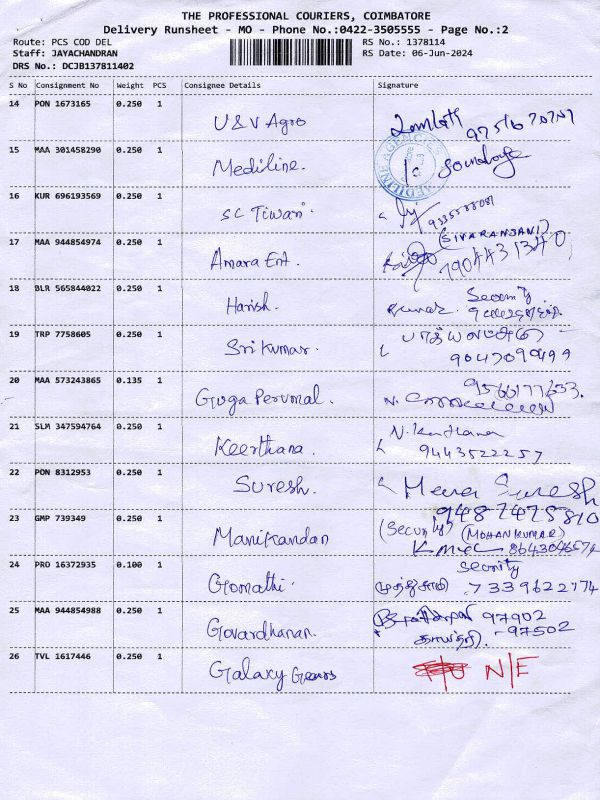 THE PROFESSIONAL COURIERS, COIMBATORE
Delivery Runsheet - MO - Phone No.:0422-3505555 - Page No.:2
Route: PCS COD DEL RS No.: 1378114
Staff: JAYACHANDRAN RS Date: 06-Jun-2024
DRS No.: DCJB137811402
S No Consignment No Weight PCS Consignee Details Signature
14 PON 1673165 0.250 1 U&V Agro
15 MAA 301458290 0.250 1 Mediline. MEDILINE AGENCIES
16 KUR 696193569 0.250 1 SC Tiwari
17 MAA 944854974 0.250 1 Amara Ent. (SIVARANJANI) 7904431340
18 BLR 565844022 0.250 1 Harish. Kumar. Security
19 TRP 7758605 0.250 1 Sri Kumar. 9047090499
20 MAA 573243865 0.135 1 Guga Perumal.
21 SLM 347594764 0.250 1 Keerthana N. Keerthana
9443522257
22 PON 8312953 0.250 1 Suresh. Suresh
9487475810
23 GMP 739349 0.250 1 Manikandan (Security) (MOHANKUMAR)
8643046574
24 PRO 16372935 0.100 1 Gomathi. Security
முத்துசாமி 7339622774
25 MAA 944854988 0.250 1 Govardhanan. 97902
97502
26 TVL 1617446 0.250 1 Galaxy Gears N/E